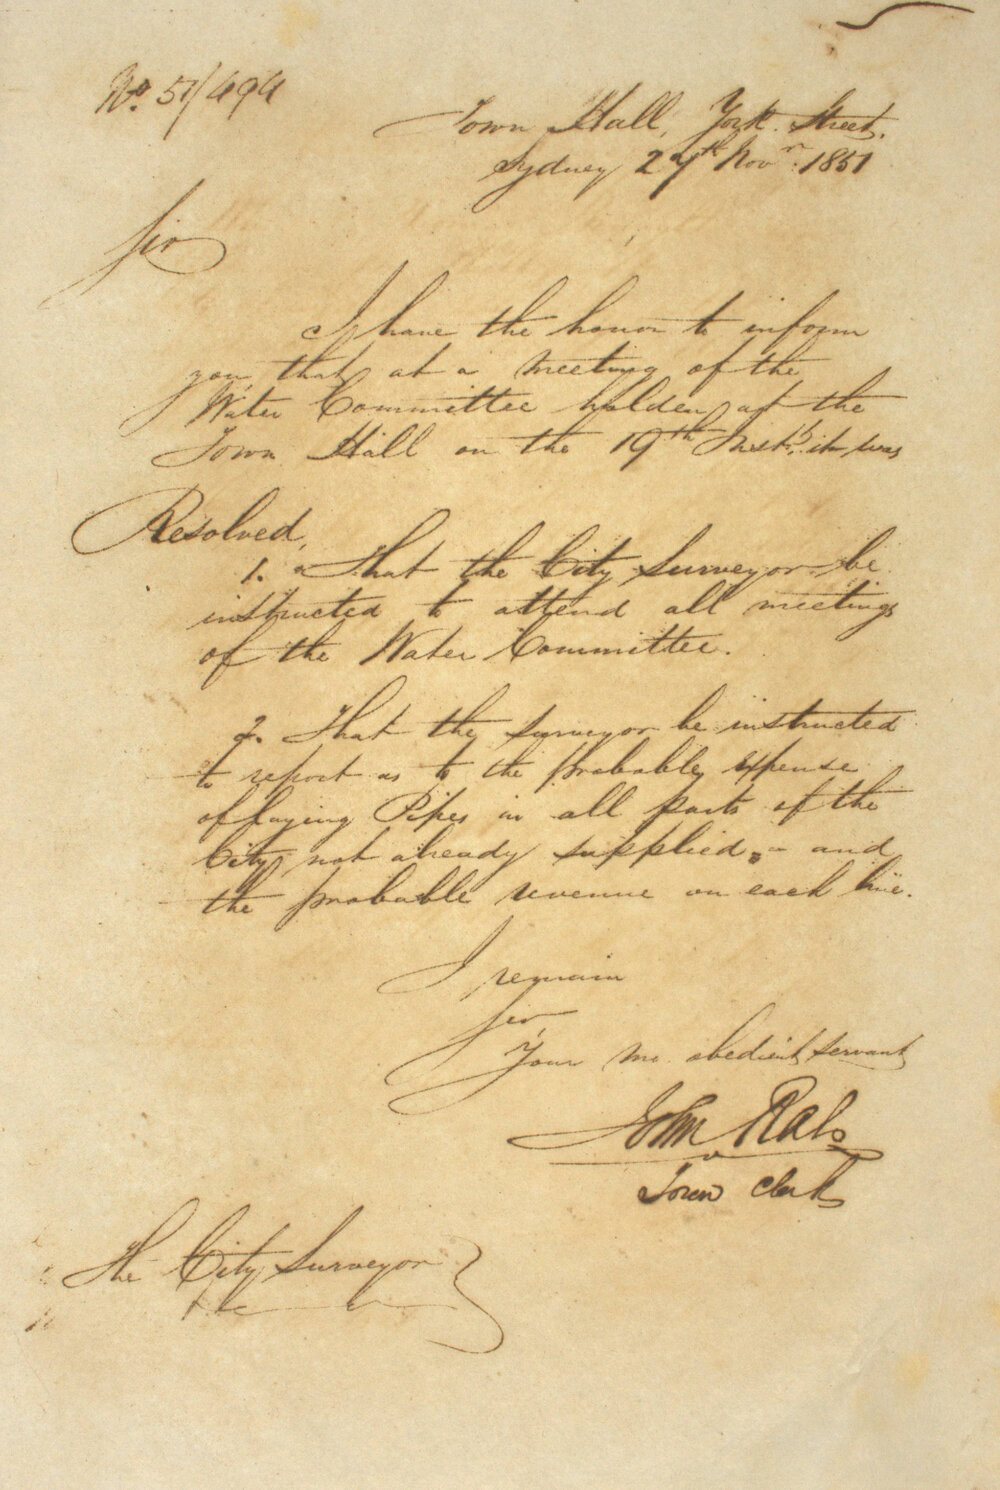 No. 51/494
Town Hall, York Street.
Sydney 27th Novr. 1851
Sir
I have the honor to inform
you that at a meeting of the
Water Committee holden at the
Town Hall on the 19th Inst. it was
Resolved,
1. That the City Surveyor be
instructed to attend all meetings
of the Water Committee.
2. That the Surveyor be instructed
to report as to the probable expense
of laying Pipes in all parts of the
City not already supplied, - and
the probable revenue on each line.
I remain
Sir,
Your mo. obedient servant
John Rae
Town Clerk
The City Surveyor